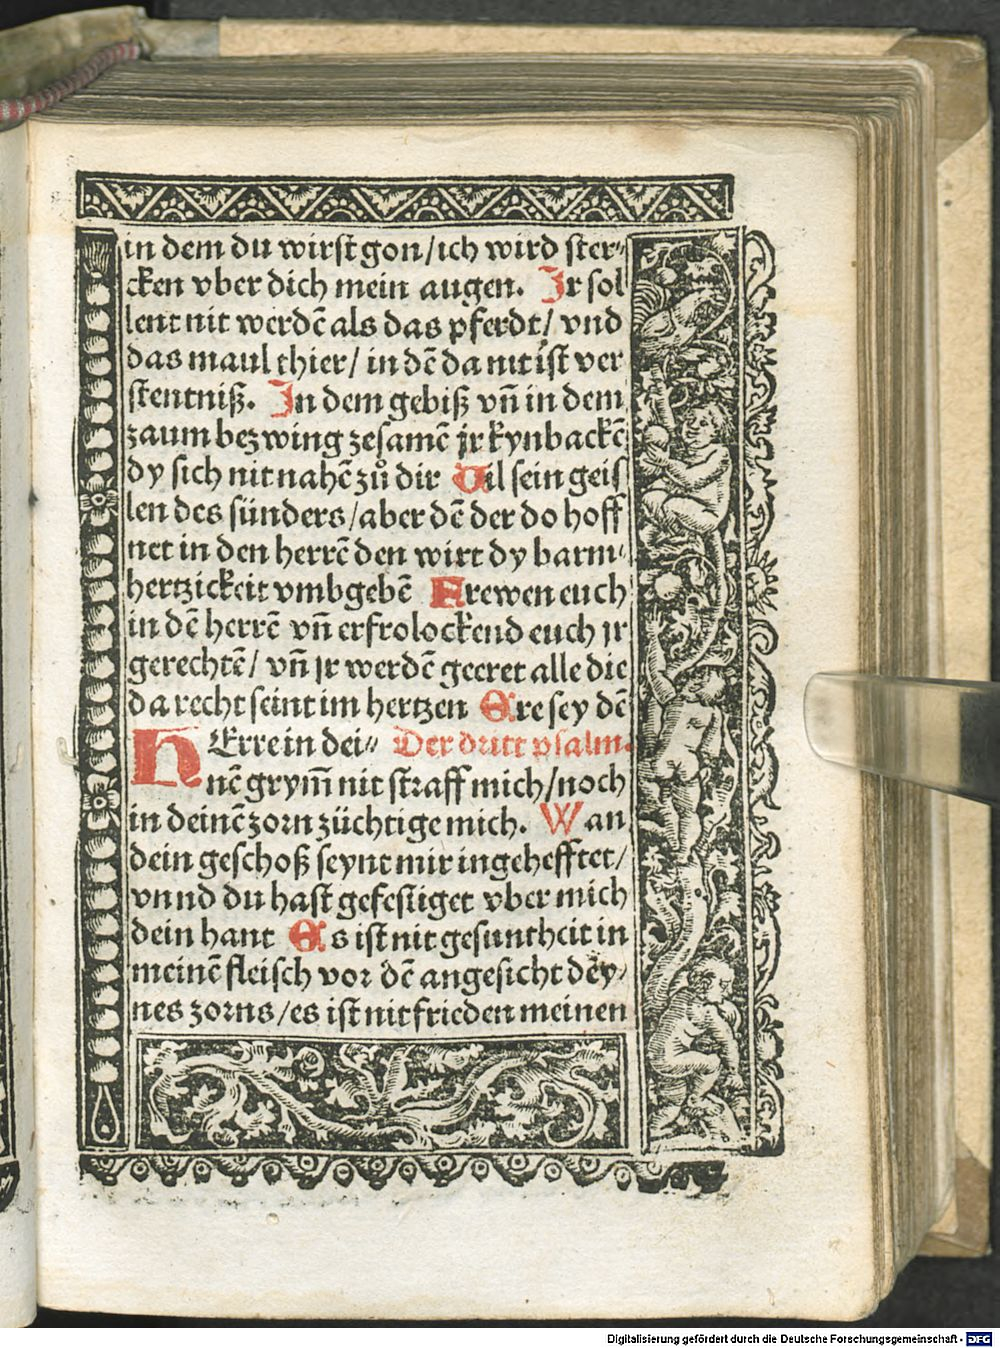 in dem du wirst gon/ich wird ster⸗
cken vber dich mein augen. Ir sol
lent nit werdē als das pferdt/ vnd
das maul thier/ in dē da nit ist ver
stentniß. In dem gebiß vn̄ in dem
zaum bezwing zesamē jr kynbackē
dy sich nit nahē zů dir Vil sein geis
len des sünders/aber dē der do hoff
net in den herrē den wirt dy barm⸗
hertzickeit vmbgebē Frewen euch
in dē herrē vn̄ erfrolockend euch jr
gerechtē/ vn̄ jr werdē geeret alle die
da recht seint im hertzen Ere sey dē
HErre in dei⸗ Der dritt psalm.
nē grym̄ nit straff mich/noch
in deinē zorn züchtige mich. Wan
dein geschoß seynt mir ingehefftet/
vnnd du hast gefestiget vber mich
dein hant Es ist nit gesuntheit in
meinē fleisch vor dē angesicht dey⸗
nes zorns/es ist nit frieden meinen
Digitalisierung gefördert durch die Deutsche Forschungsgemeinschaft - DFG